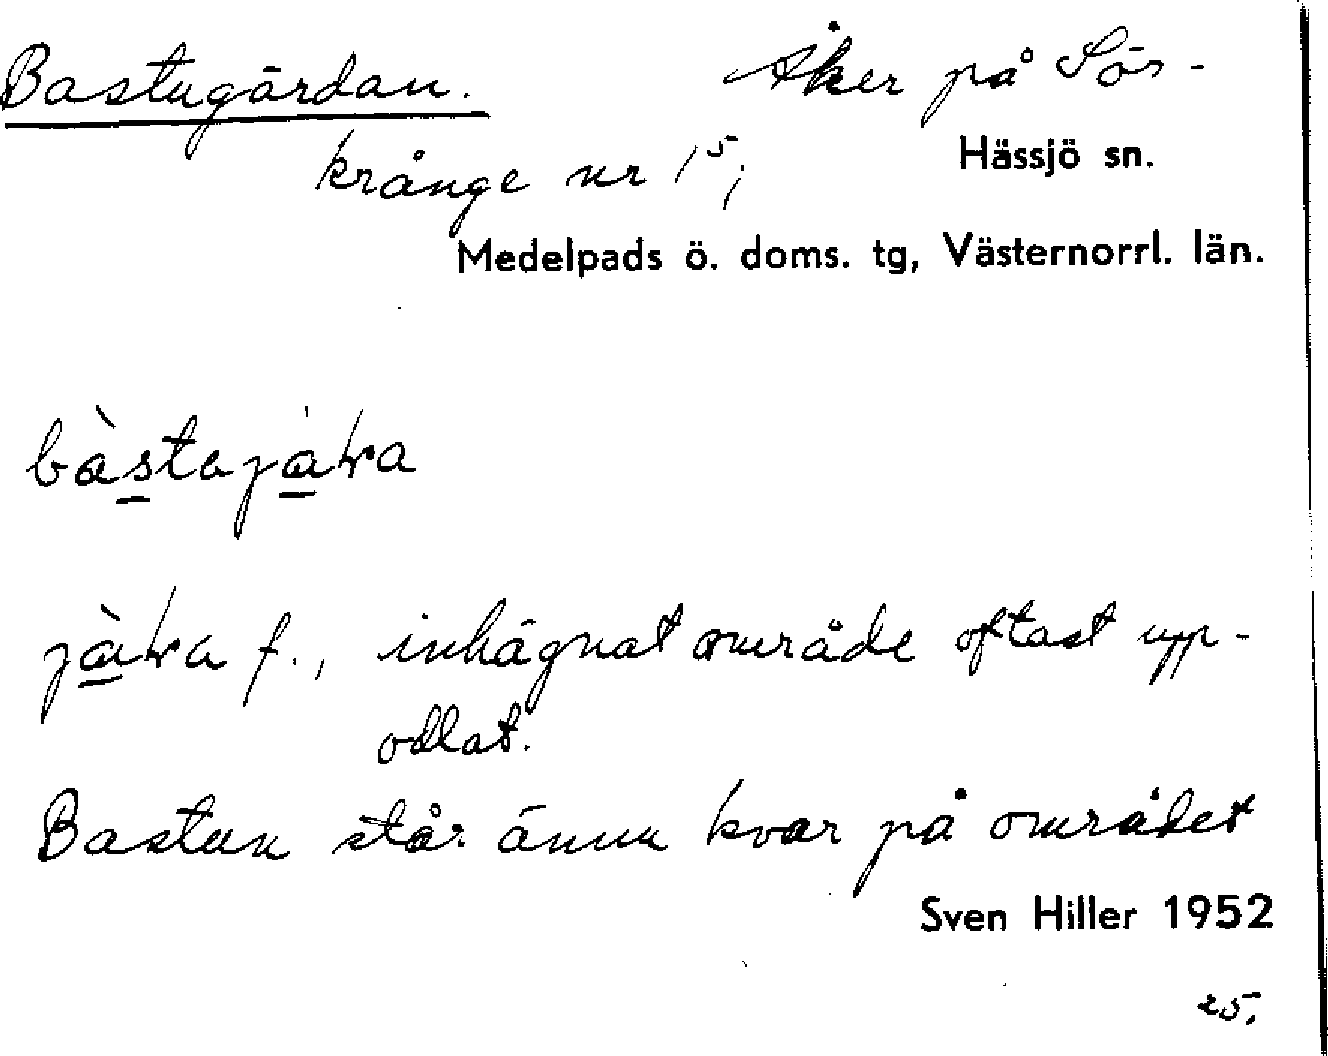 Bastugärdan. Åker på Sör-
krånge nr 15;
Hässjö sn.
Medelpads ö. doms. tg, Västernorrl. län.
f., inhägnat område oftast upp-
odlat.
Bastun står ännu kvar på området
Sven Hiller 1952
25.